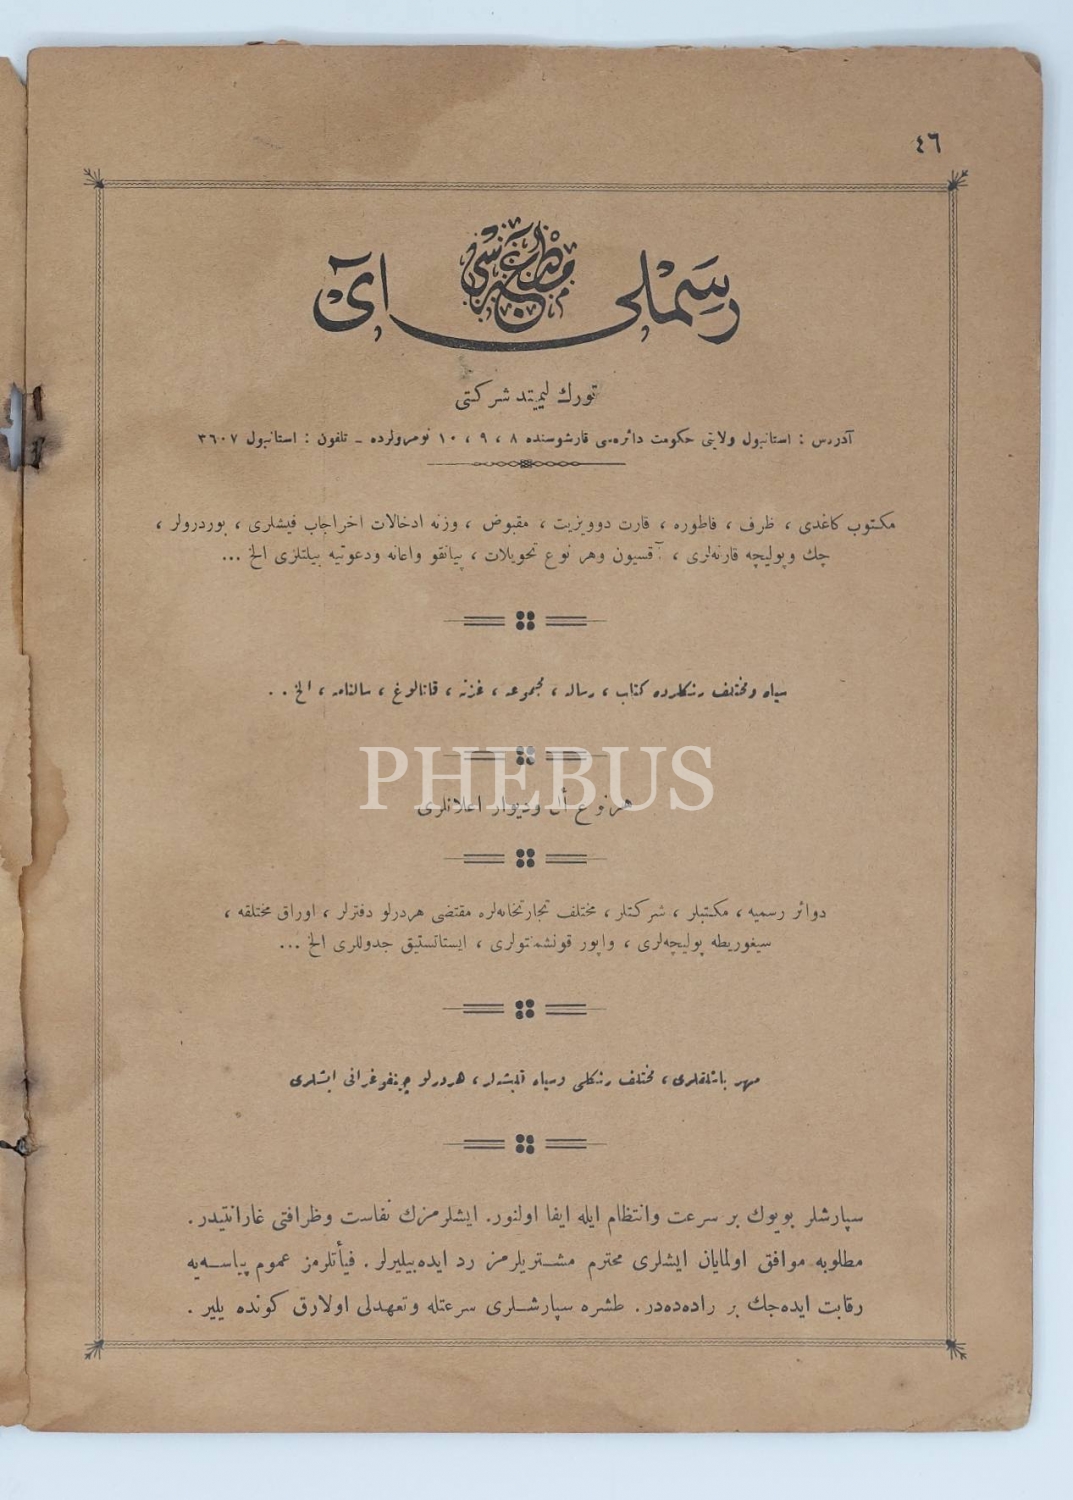 ٤٦
رسملی آی
مطبعه‌سی
تورك لیمیتد شركتی
آدرس : استانبول ولایتی حكومت دائره‌سی قارشوسنده ٨ ، ٩ ، ١٠ نومرولرده ـ تلفون : استانبول ٣٦٠٧
مكتوب كاغدی ، ظرف ، فاطوره ، قارت دوویزیت ، مقبوض ، وزنه ادخالات اخراجاب فیشلری ، بوردرولر ،
چك وپولیچه قارنه‌لری ، آقسیون وهر نوع تحویلات ، پیانقو واعانه ودعوتیه بیلتلری الخ ...
سیاه ومختلف رنكلرده كتاب ، رساله ، مجموعه ، غزته ، قاتالوغ ، سالنامه ، الخ . .
PHEBUS
هر نوع أل ودیوار اعلانلری
دوائر رسمیه ، مكتبلر ، شركتلر ، مختلف تجارتخانه‌لره مقتضی هردرلو دفترلر ، اوراق مختلفه ،
سیغوریطه پولیچه‌لری ، واپور قونشمتولری ، ایستاتستیق جدوللری الخ ...
مهر باشلقلری ، مختلف رنكلی وسیاه قلیشه‌لر ، هردرلو چینقوغرافی ایشلری
سپارشلر بویوك بر سرعت وانتظام ایله ایفا اولنور. ایشلرمزك نفاست وظرافتی غارانتیدر .
مطلوبه موافق اولمایان ایشلری محترم مشتریلرمز رد ایده‌بیلیرلر . فیأتلرمز عموم پیاسه‌یه
رقابت ایده‌جك بر راده‌ده‌در. طشره سپارشلری سرعتله وتعهدلی اولارق كونده‌ یلیر .